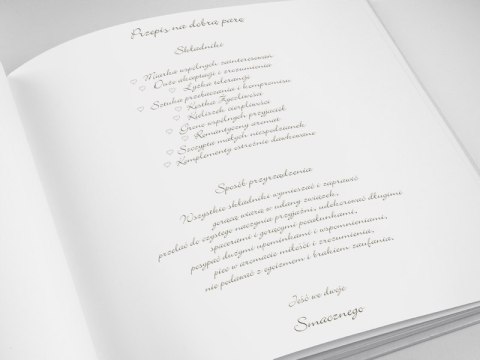 Przepis na dobrą parę
Składniki
Miarka wspólnych zainteresowań
Dużo akceptacji i zrozumienia
Łyżka tolerancji
Sztuka przebaczania i kompromisu
Kostka życzliwości
Kieliszek cierpliwości
Grono wspólnych przyjaciół
Romantyczny aromat
Szczypta małych niespodzianek
Komplementy ostrożnie dawkowane
Sposób przyrządzenia
Wszystkie składniki wymieszać i zaprawić
gorącą wiarą w udany związek,
przelać do czystego naczynia przyjaźni, udekorować długimi
spacerami i gorącymi pocałunkami,
posypać dużymi upominkami i wspomnieniami,
piec w aromacie miłości i zrozumienia,
nie podawać z egoizmem i brakiem zaufania.
Jeść we dwoje
Smacznego